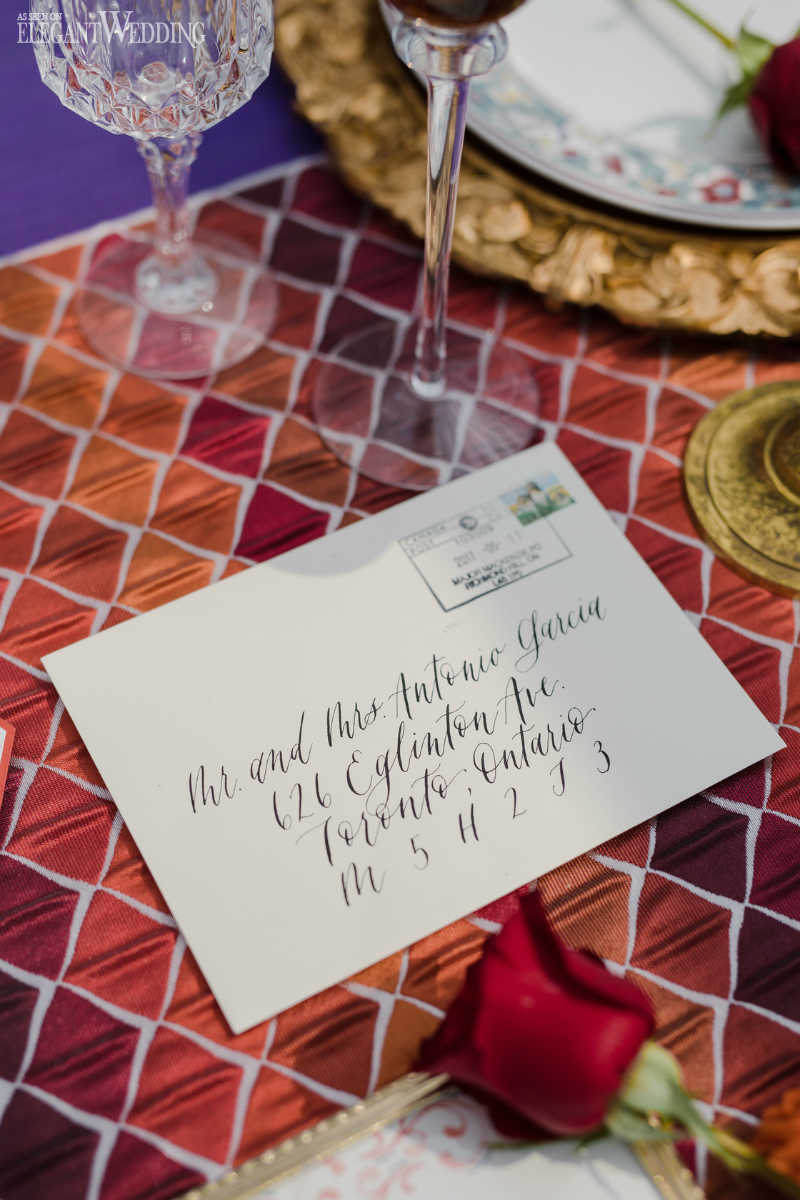 AS SEEN ON
ELEGANTWEDDING
CANADA
POST 103009
MAJOR MACKENZIE PO
RICHMOND HILL ON
Mr. and Mrs. Antonio Garcia
626 Eglinton Ave.
Toronto, Ontario.
M 5 H 2 J 3